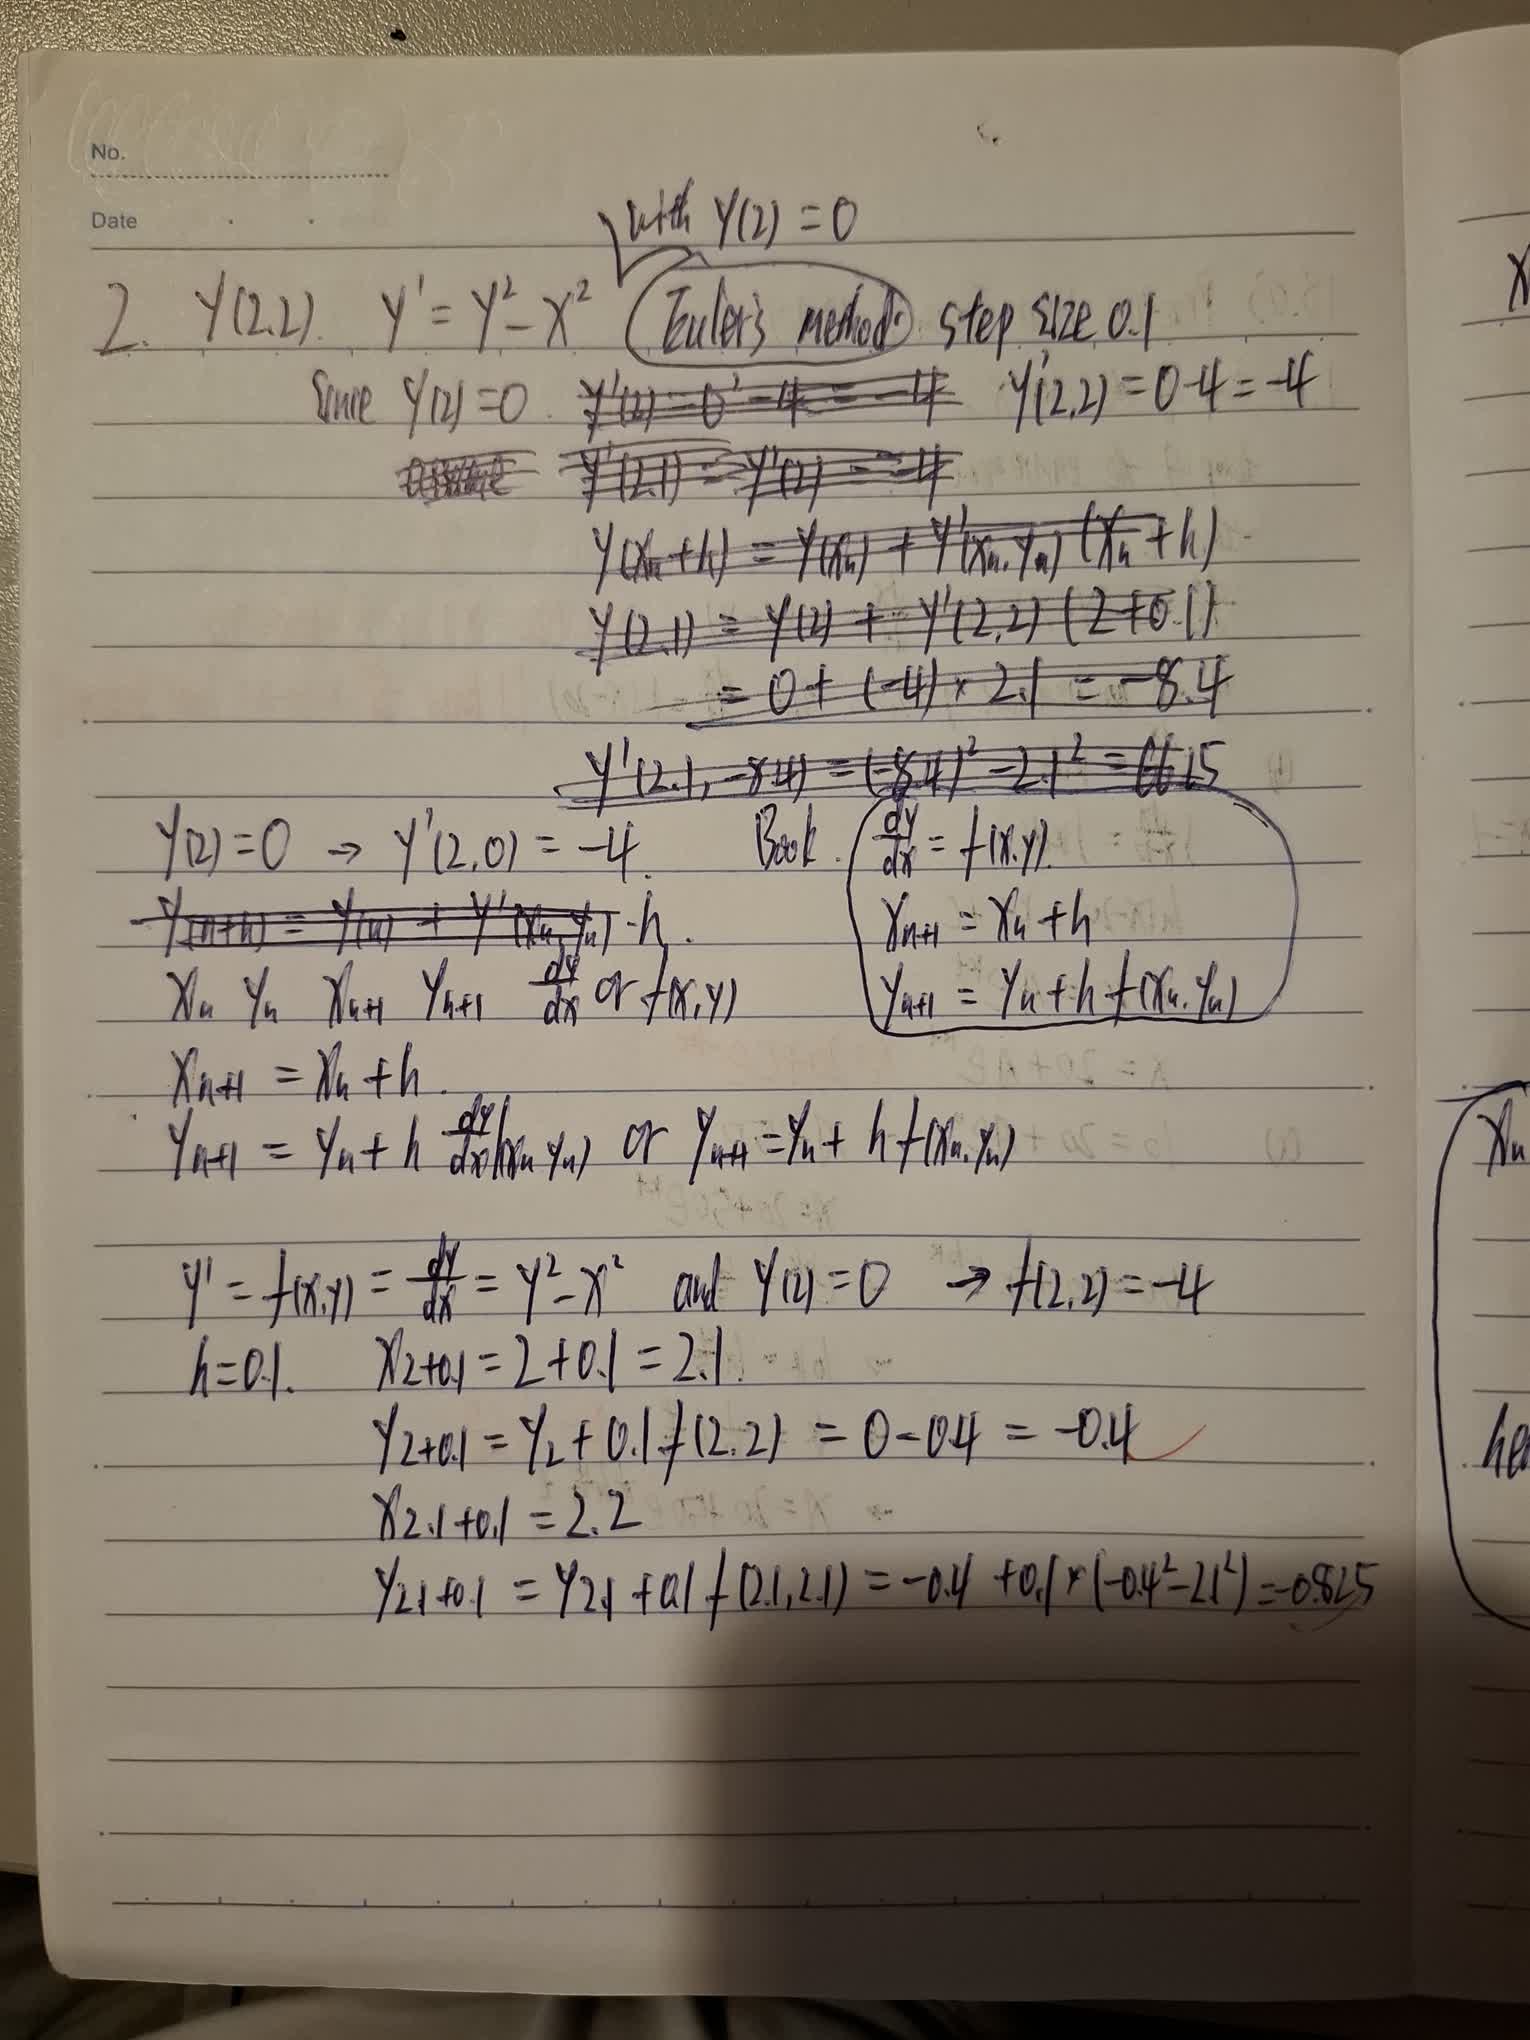 No.
Date
with y(2) = 0
2. y(2.2). y' = y² - x² Euler's method step size 0.1
Since y(2) = 0. y'(2) = 0² - 4 = -4 y'(2,2) = 0-4 = -4
y'(2.1) = y'(2) = -4
y(xn+h) = y(xn) + y'(xn,yn) (xn+h)
y(2.1) = y(2) + y'(2,2) (2+0.1)
= 0 + (-4) × 2.1 = -8.4
y'(2.1, -8.4) = (-8.4)² - 2.1² = 66.15
y(2) = 0 → y'(2,0) = -4. Book. dy/dx = f(x,y).
y(n+h) = y(n) + y'(xn,yn) · h. xn+1 = xn + h
xn yn xn+1 yn+1 dy/dx or f(x,y) yn+1 = yn + h f(xn,yn)
xn+1 = xn + h.
yn+1 = yn + h dy/dx|(xn yn) or yn+1 = yn + h f(xn,yn)
y' = f(x,y) = dy/dx = y² - x² and y(2) = 0 → f(2,2) = -4
h = 0.1. x2+0.1 = 2 + 0.1 = 2.1
y2+0.1 = y2 + 0.1 f(2,2) = 0 - 0.4 = -0.4
x2.1+0.1 = 2.2
y2.1+0.1 = y2.1 + 0.1 f(2.1,2.1) = -0.4 + 0.1 × (-0.4² - 2.1²) = -0.825